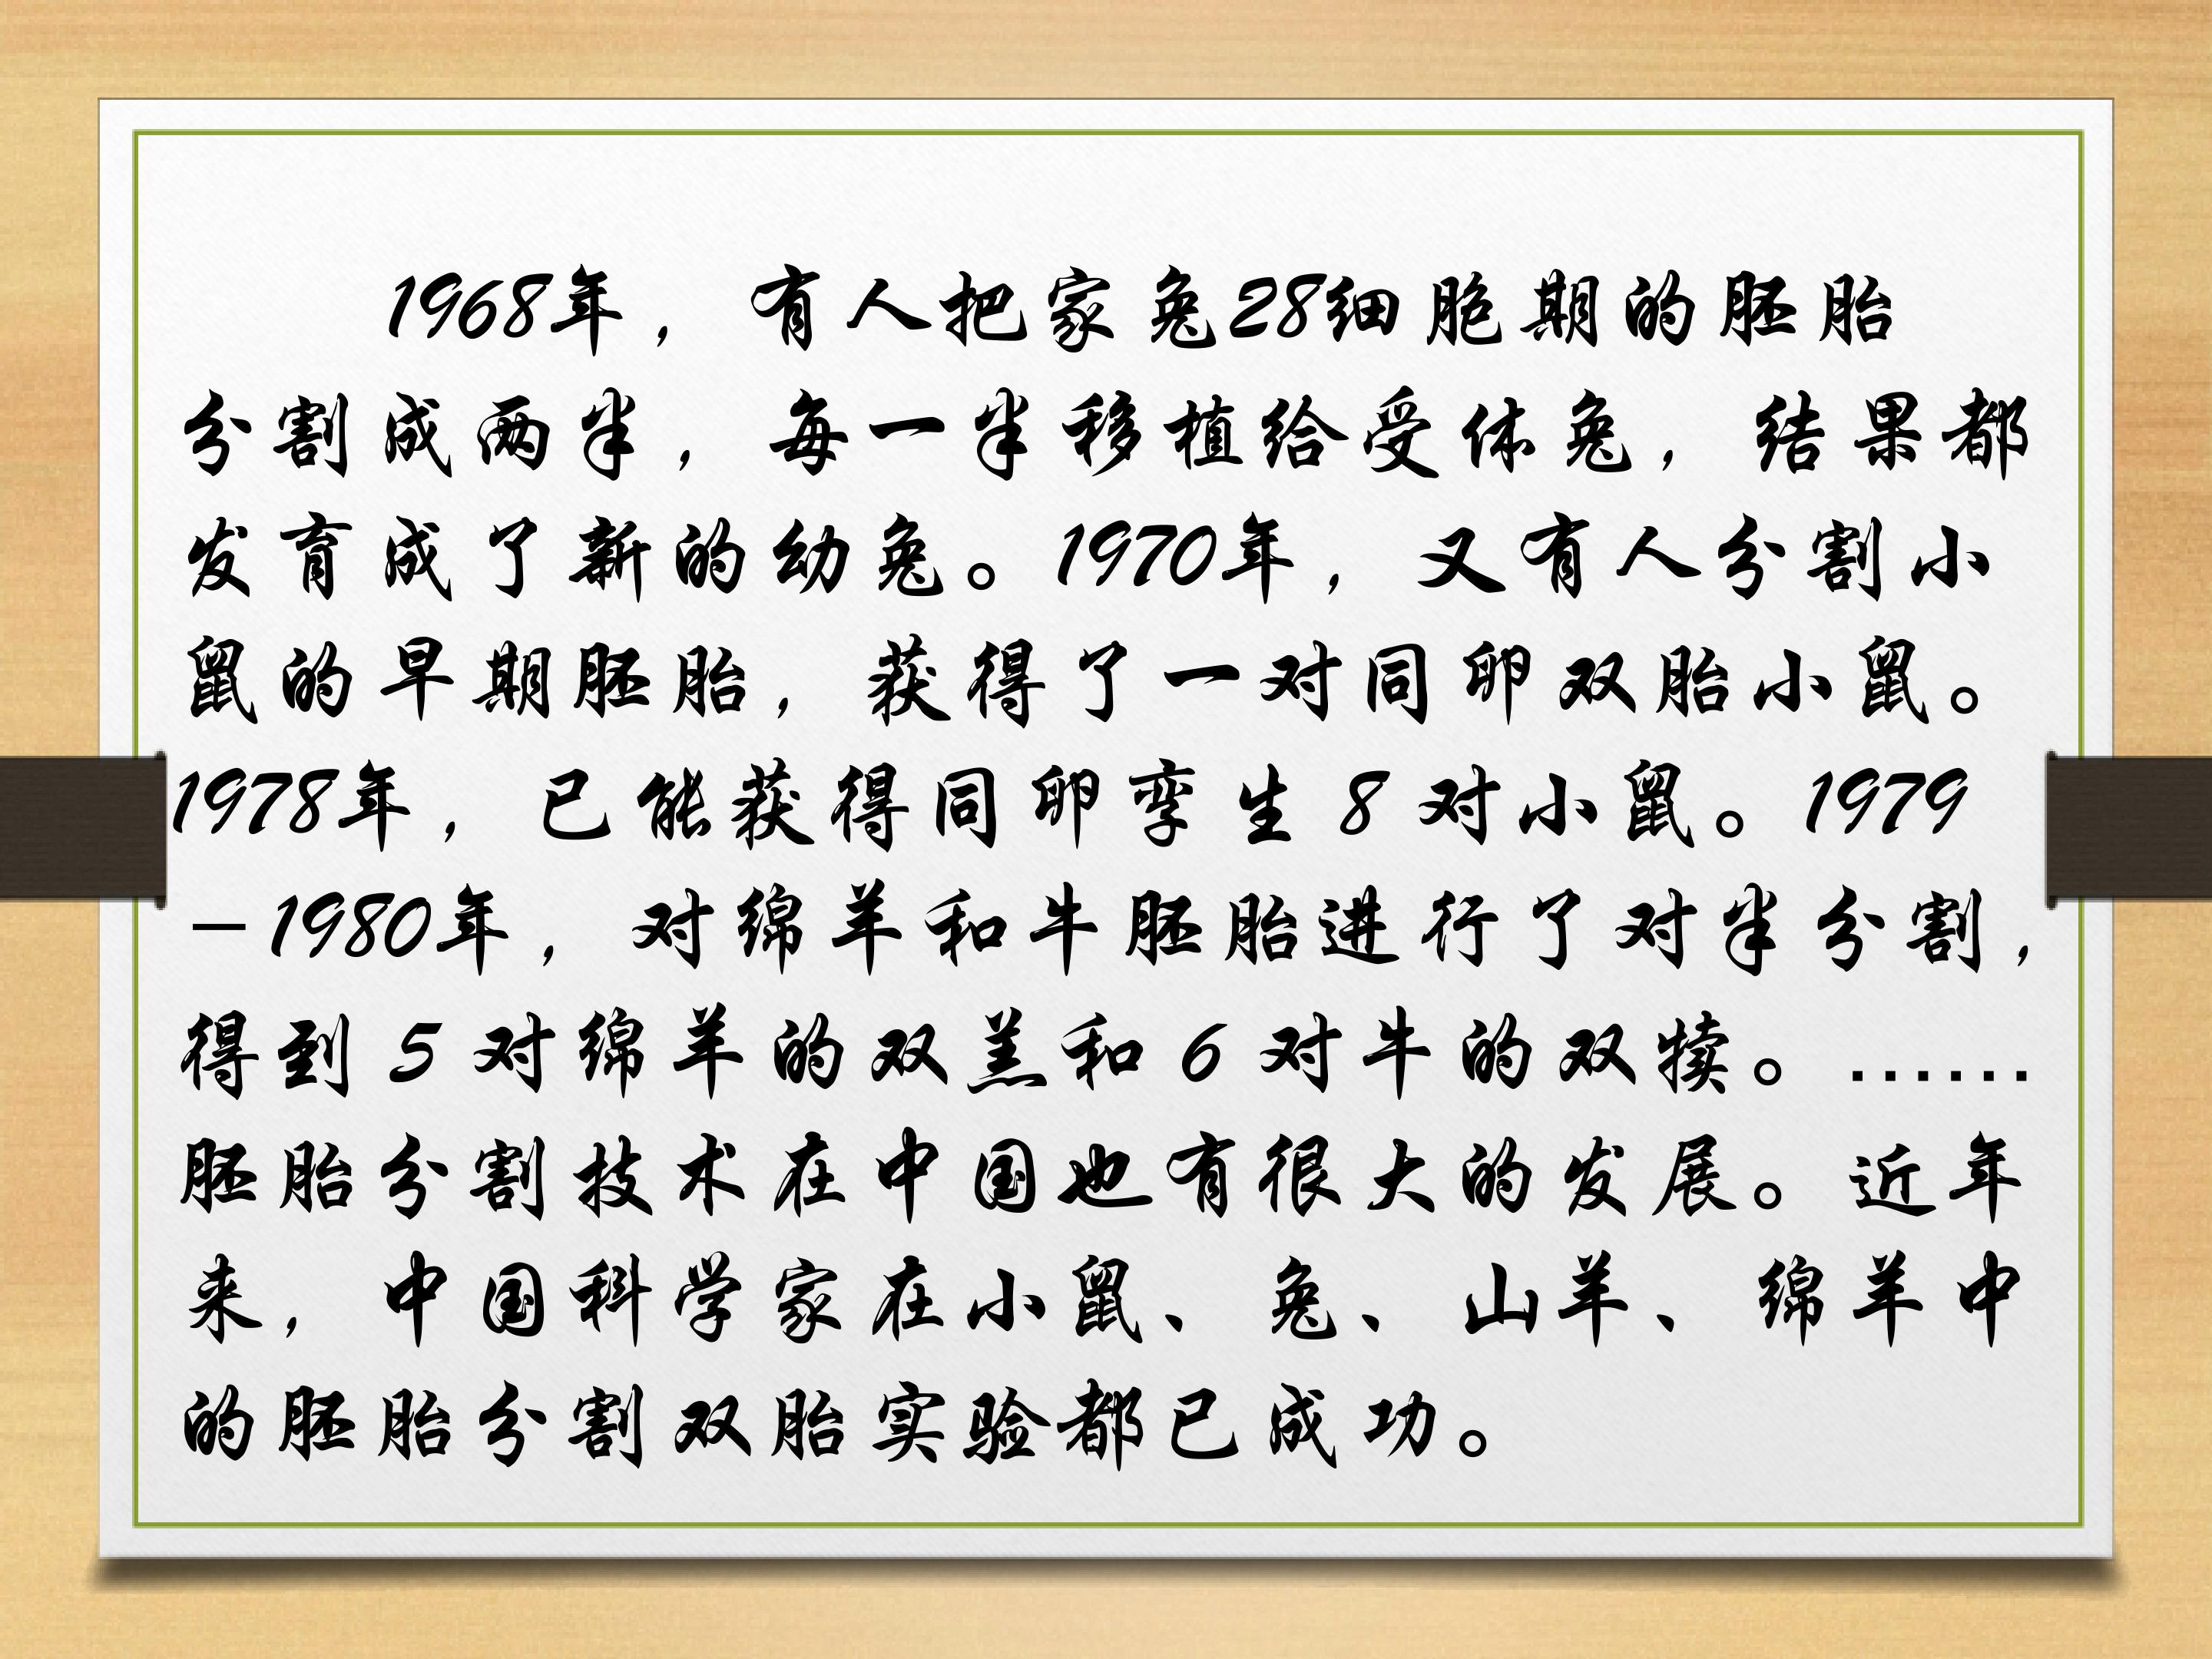 1968年，有人把家兔28细胞期的胚胎
分割成两半，每一半移植给受体兔，结果都
发育成了新的幼兔。1970年，又有人分割小
鼠的早期胚胎，获得了一对同卵双胎小鼠。
1978年，已能获得同卵孪生8对小鼠。1979
－1980年，对绵羊和牛胚胎进行了对半分割，
得到5对绵羊的双羔和6对牛的双犊。……
胚胎分割技术在中国也有很大的发展。近年
来，中国科学家在小鼠、兔、山羊、绵羊中
的胚胎分割双胎实验都已成功。